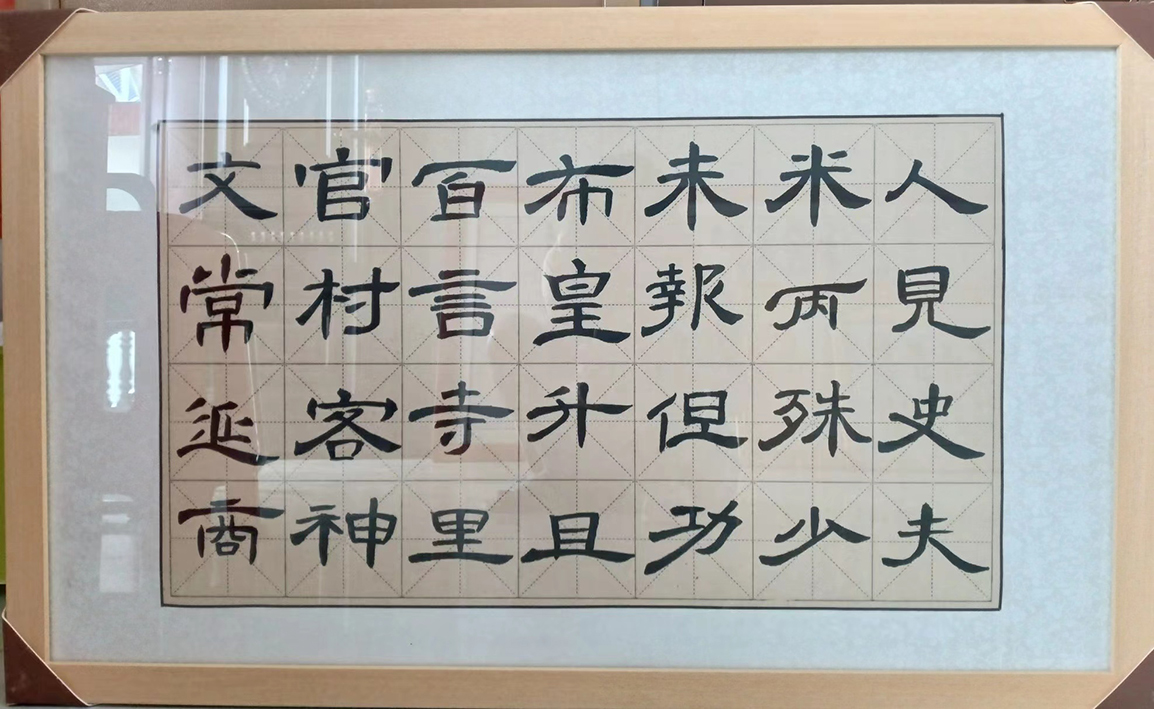 人見史夫
米丙殊少
未報但功
布皇升且
百言寺里
官村客神
文常延商